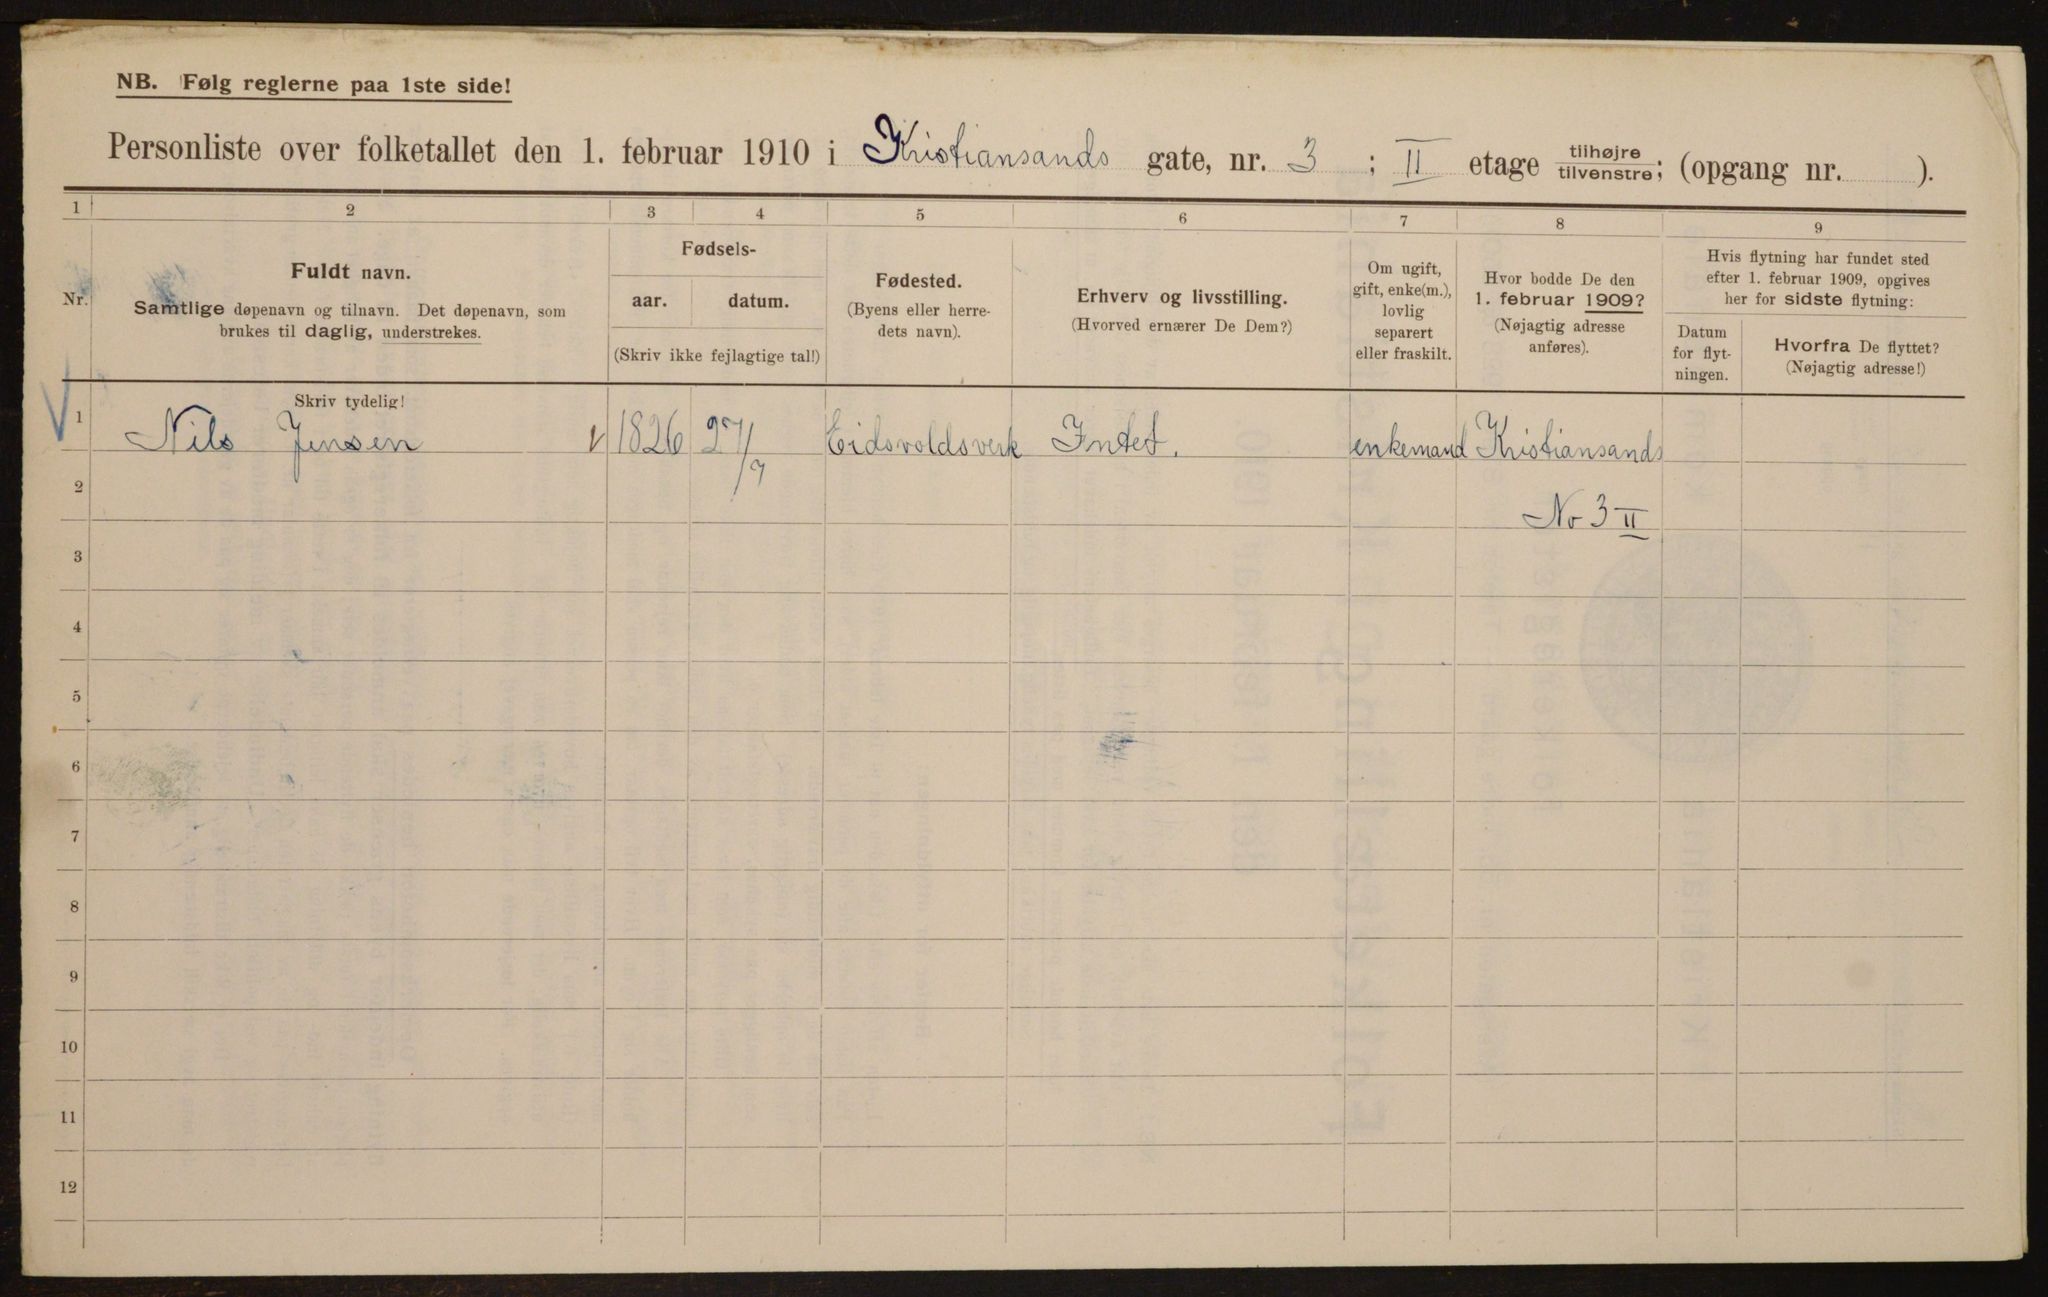 NB. Følg reglerne paa 1ste side!
Personliste over folketallet den 1. februar 1910 i Kristiansands gate, nr. 3 ; II etage tilhøjre/tilvenstre; (opgang nr. ).
1 2 3 4 5 6 7 8 9
Nr.
Fuldt navn.
Samtlige døpenavn og tilnavn. Det døpenavn, som
brukes til daglig, understrekes.
Fødsels-
aar. datum.
(Skriv ikke fejlagtige tal!)
Fødested.
(Byens eller herre-
dets navn).
Erhverv og livsstilling.
(Hvorved ernærer De Dem?)
Om ugift,
gift, enke(m.),
lovlig
separert
eller fraskilt.
Hvor bodde De den
1. februar 1909?
(Nøjagtig adresse
anføres).
Hvis flytning har fundet sted
efter 1. februar 1909, opgives
her for sidste flytning:
Datum
for flyt-
ningen.
Hvorfra De flyttet?
(Nøjagtig adresse!)
Skriv tydelig!
1 Nils Jensen 1826 27/7 Eidsvoldsverk Intet. enkemand Kristiansands
2 No 3 II
3
4
5
6
7
8
9
10
11
12